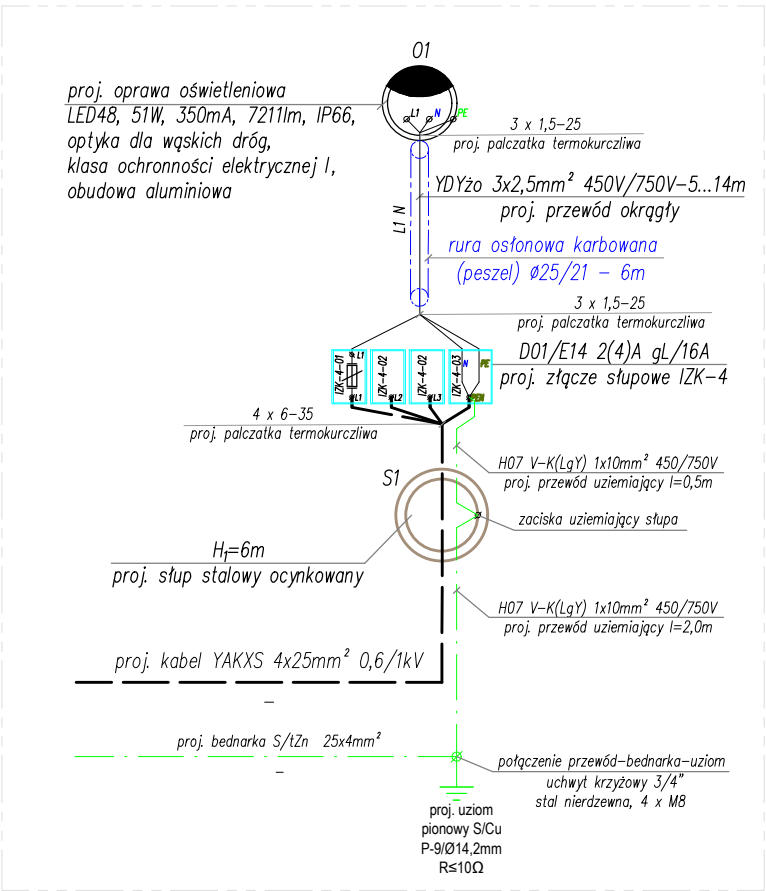 01
proj. oprawa oświetleniowa
LED48, 51W, 350mA, 7211lm, IP66,
optyka dla wąskich dróg,
klasa ochronności elektrycznej I,
obudowa aluminiowa
L1 N PE
3 x 1,5-25
proj. palczatka termokurczliwa
YDYżo 3x2,5mm² 450V/750V-5...14m
proj. przewód okrągły
L1 N
rura osłonowa karbowana
(peszel) ø25/21 - 6m
3 x 1,5-25
proj. palczatka termokurczliwa
D01/E14 2(4)A gL/16A
proj. złącze słupowe IZK-4
IZK-4-01
L1
L1
IZK-4-02
L2
IZK-4-02
L3
IZK-4-03
N PE
PEN
4 x 6-35
proj. palczatka termokurczliwa
H07 V-K(LgY) 1x10mm² 450/750V
proj. przewód uziemiający l=0,5m
S1
zaciska uziemiający słupa
H₁=6m
proj. słup stalowy ocynkowany
H07 V-K(LgY) 1x10mm² 450/750V
proj. przewód uziemiający l=2,0m
proj. kabel YAKXS 4x25mm² 0,6/1kV
–
proj. bednarka S/tZn 25x4mm²
–
połączenie przewód-bednarka-uziom
uchwyt krzyżowy 3/4"
stal nierdzewna, 4 x M8
proj. uziom
pionowy S/Cu
P-9/Ø14,2mm
R≤10Ω